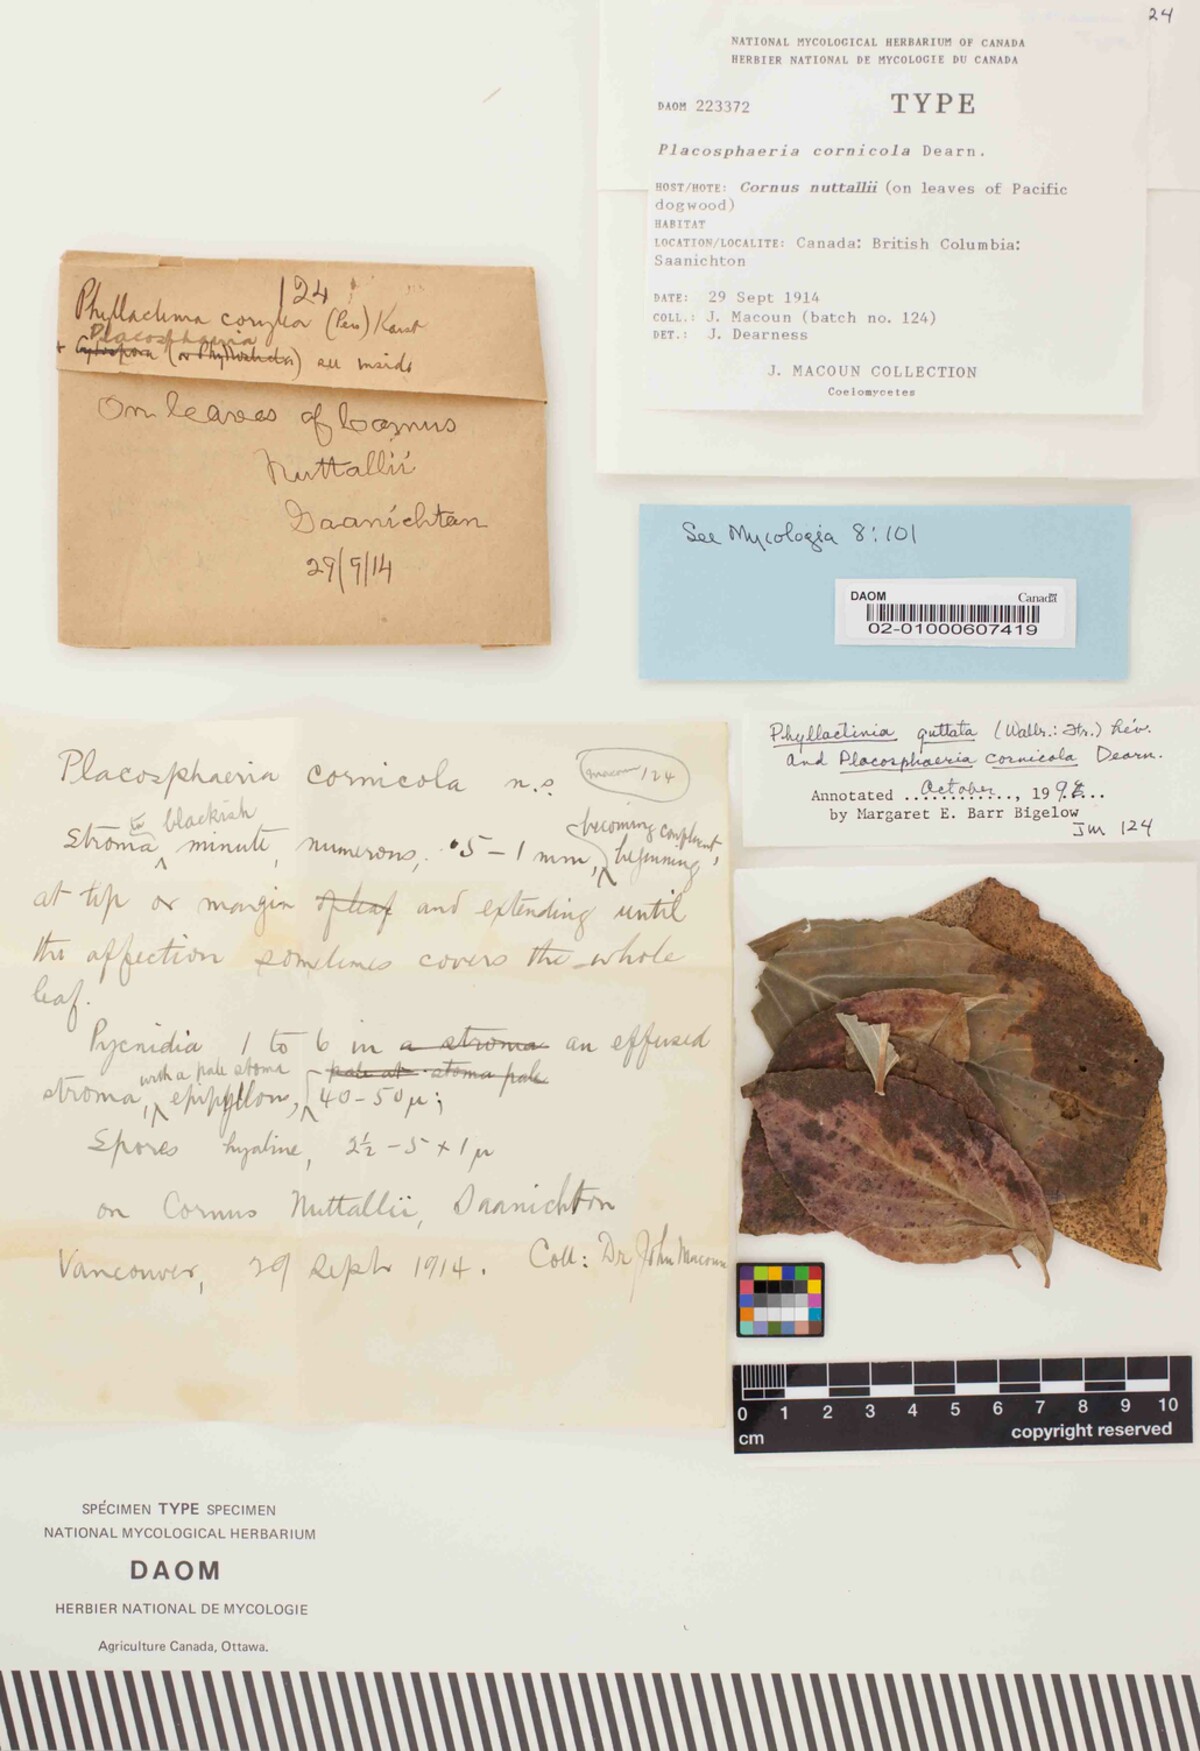 24
NATIONAL MYCOLOGICAL HERBARIUM OF CANADA
HERBIER NATIONAL DE MYCOLOGIE DU CANADA
DAOM 223372 TYPE
Placosphaeria cornicola Dearn.
HOST/HOTE: Cornus nuttallii (on leaves of Pacific
dogwood)
HABITAT
LOCATION/LOCALITE: Canada: British Columbia:
Saanichton
DATE: 29 Sept 1914
COLL.: J. Macoun (batch no. 124)
DET.: J. Dearness
J. MACOUN COLLECTION
Coelomycetes
124
(Pers) Karst
Placosphaeria
+ Cytospora (or Phyllosticta) see inside
On leaves of Cornus
Nuttallii
Saanichtan
29/9/14
See Mycologia 8:101
DAOM Canada
02-01000607419
Phyllactinia guttata (Wallr.: Fr.) Lév.
and Placosphaeria cornicola Dearn.
Annotated October, 199
by Margaret E. Barr Bigelow
Jm 124
Placosphaeria cornicola n.s.
macoun 124
blackish
becoming confluent,
Stroma minute, numerous, .5 - 1 mm, beginning
at tip or margin of leaf and extending until
the affection sometimes covers the whole
leaf.
Pycnidia 1 to 6 in a stroma an effused
with a pale stoma pale at stoma pale
stroma, epiphyllous, 40-50 µ;
Spores hyaline, 2½ - 5 x 1 µ
on Cornus Nuttallii, Saanichton
Vancouver, 29 Sept 1914. Coll: Dr John Macoun
0 1 2 3 4 5 6 7 8 9 10
cm copyright reserved
SPÉCIMEN TYPE SPECIMEN
NATIONAL MYCOLOGICAL HERBARIUM
DAOM
HERBIER NATIONAL DE MYCOLOGIE
Agriculture Canada, Ottawa.